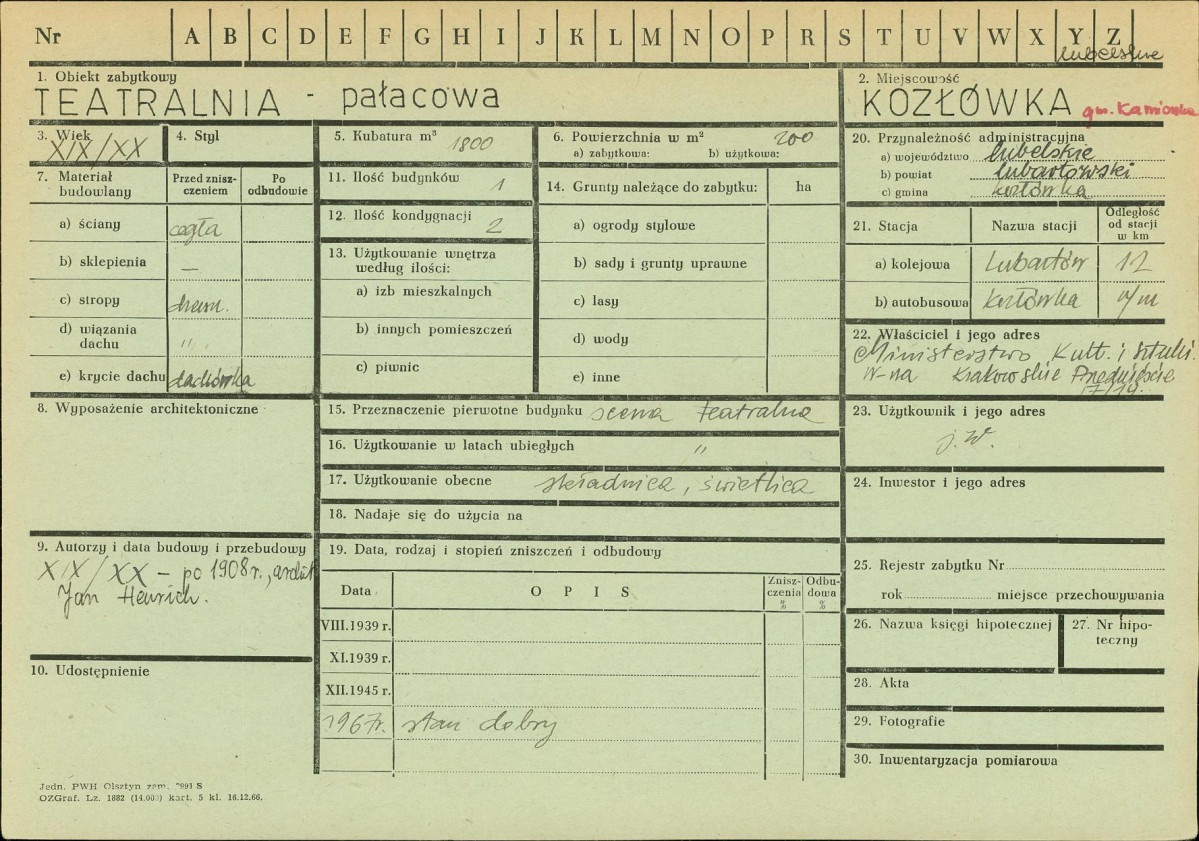 Nr A B C D E F G H I J K L M N O P R S T U V W X Y Z
lubelskie
1. Obiekt zabytkowy
TEATRALNIA - pałacowa
2. Miejscowość
KOZŁÓWKA gm. Kamionka
3. Wiek
XIX/XX
4. Styl
5. Kubatura m³ 1800
6. Powierzchnia w m² 200
a) zabytkowa: b) użytkowa:
7. Materiał budowlany
Przed zniszczeniem
Po odbudowie
a) ściany cegła
b) sklepienia —
c) stropy drewn.
d) wiązania dachu " .
e) krycie dachu dachówka
8. Wyposażenie architektoniczne
9. Autorzy i data budowy i przebudowy
XIX/XX – po 1908 r., archit.
Jan Heurich.
10. Udostępnienie
11. Ilość budynków 1
12. Ilość kondygnacji 2
13. Użytkowanie wnętrza
według ilości:
a) izb mieszkalnych
b) innych pomieszczeń
c) piwnic
14. Grunty należące do zabytku: ha
a) ogrody stylowe
b) sady i grunty uprawne
c) lasy
d) wody
e) inne
15. Przeznaczenie pierwotne budynku scena teatralna
16. Użytkowanie w latach ubiegłych "
17. Użytkowanie obecne składnica, świetlica
18. Nadaje się do użycia na
19. Data, rodzaj i stopień zniszczeń i odbudowy
Data OPIS Zniszczenia % Odbudowa %
VIII.1939 r.
XI.1939 r.
XII.1945 r.
1967r. stan dobry
20. Przynależność administracyjna
a) województwo lubelskie
b) powiat lubartowski
c) gmina kozłówka
21. Stacja Nazwa stacji Odległość od stacji w km
a) kolejowa Lubartów 12
b) autobusowa kozłówka n/m
22. Właściciel i jego adres
Ministerstwo Kult. i Sztuki.
W-na Krakowskie Przedmieście
17/19.
23. Użytkownik i jego adres
j.w.
24. Inwestor i jego adres
25. Rejestr zabytku Nr
rok miejsce przechowywania
26. Nazwa księgi hipotecznej
27. Nr hipoteczny
28. Akta
29. Fotografie
30. Inwentaryzacja pomiarowa
Jedn. PWH Olsztyn zam. 991 S
OZGraf. Lz. 1882 (14.000) kart. 5 kl. 16.12.66.